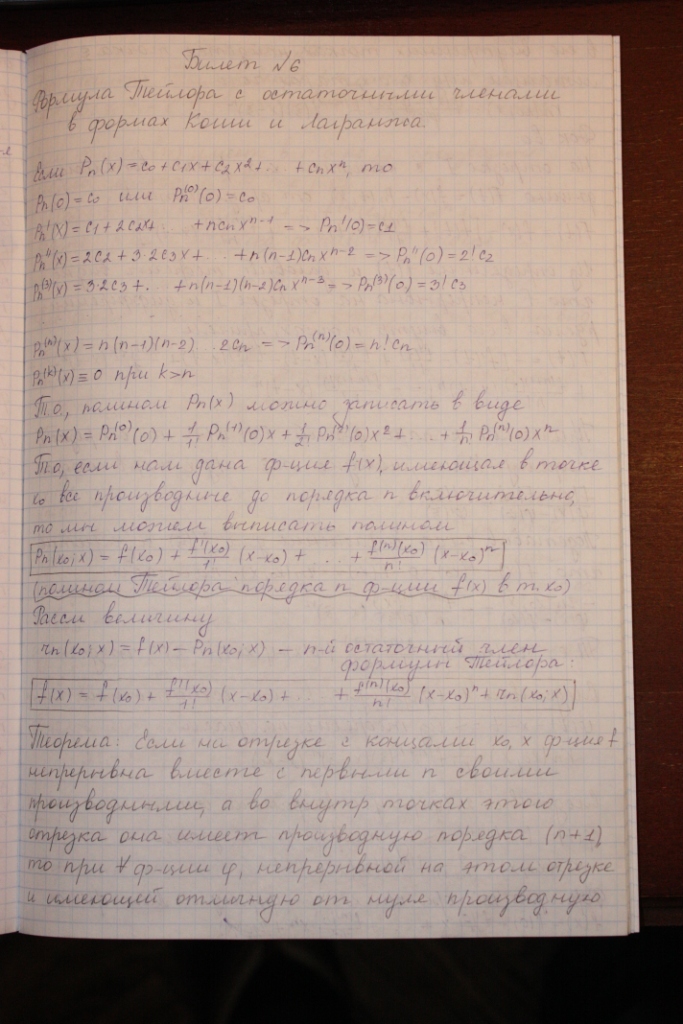 Билет №6
Формула Тейлора с остаточными членами
в формах Коши и Лагранжа.
Если Pn(x) = c0 + c1x + c2x2 + .. + cnxⁿ, то
Pn(0) = c0 или Pn⁽⁰⁾(0) = c0
Pn'(x) = c1 + 2c2x + .. + ncnxⁿ⁻¹ => Pn'(0) = c1
Pn''(x) = 2c2 + 3·2c3x + .. + n(n-1)cnxⁿ⁻² => Pn''(0) = 2!c2
Pn⁽³⁾(x) = 3·2c3 + .. + n(n-1)(n-2)cnxⁿ⁻³ => Pn⁽³⁾(0) = 3!c3
Pn⁽ⁿ⁾(x) = n(n-1)(n-2) .. 2cn => Pn⁽ⁿ⁾(0) = n!cn
Pn⁽ᵏ⁾(x) ≡ 0 при k>n
Т.о, полином Pn(x) можно записать в виде
Pn(x) = Pn⁽⁰⁾(0) + 1/1! Pn⁽¹⁾(0)x + 1/2! Pn⁽²⁾(0)x² + .. + 1/n! Pn⁽ⁿ⁾(0)xⁿ
Т.о, если нам дана ф-ция f(x), имеющая в точке
x0 все производные до порядка n включительно,
то мы можем выписать полином
Pn(x0; x) = f(x0) + f'(x0)/1! (x-x0) + .. + f⁽ⁿ⁾(x0)/n! (x-x0)ⁿ
(полином Тейлора порядка n ф-ции f(x) в т. x0)
Рассм величину
rn(x0; x) = f(x) - Pn(x0; x) - n-й остаточный член
формулы Тейлора:
f(x) = f(x0) + f'(x0)/1! (x-x0) + .. + f⁽ⁿ⁾(x0)/n! (x-x0)ⁿ + rn(x0; x)
Теорема: Если на отрезке с концами x0, x ф-ция f
непрерывна вместе с первыми n своими
производными, а во внутр точках этого
отрезка она имеет производную порядка (n+1)
то при ∀ ф-ции φ, непрерывной на этом отрезке
и имеющей отличную от нуля производную